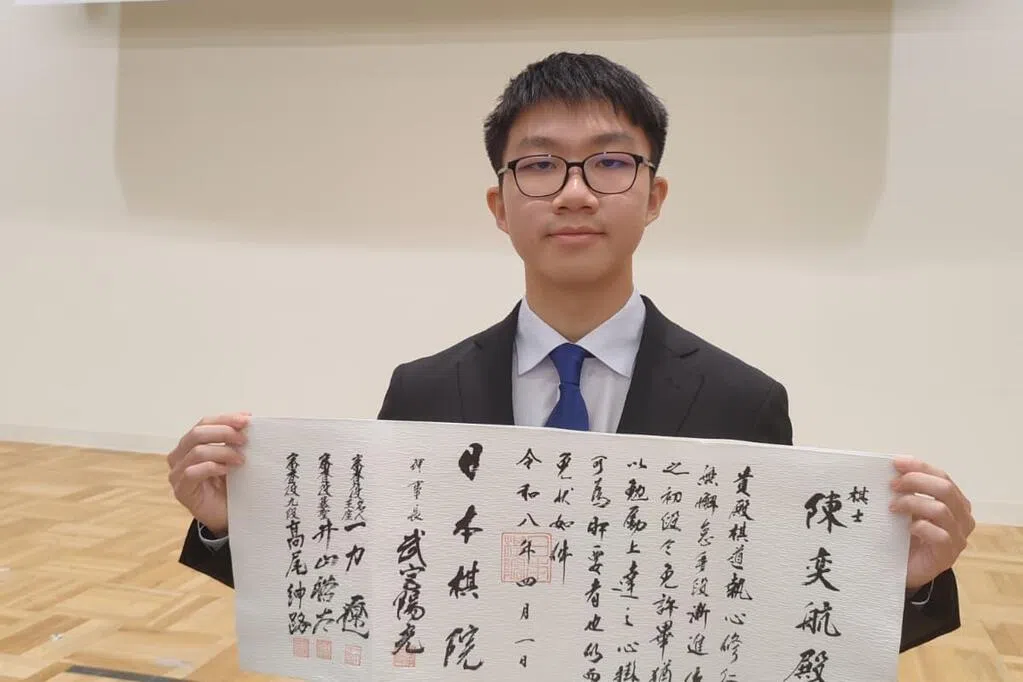 棋士
陳奕航殿
貴殿棋道執心修行
無懈怠手段漸進依
之初段令免許畢猶
以勉励上達之心掛
可為肝要者也仍而
免状如件
令和八年四月一日
日本棋院
理事長 武宮陽光
審査役名人 一力遼
審査役碁聖 井山裕太
審査役九段 高尾紳路